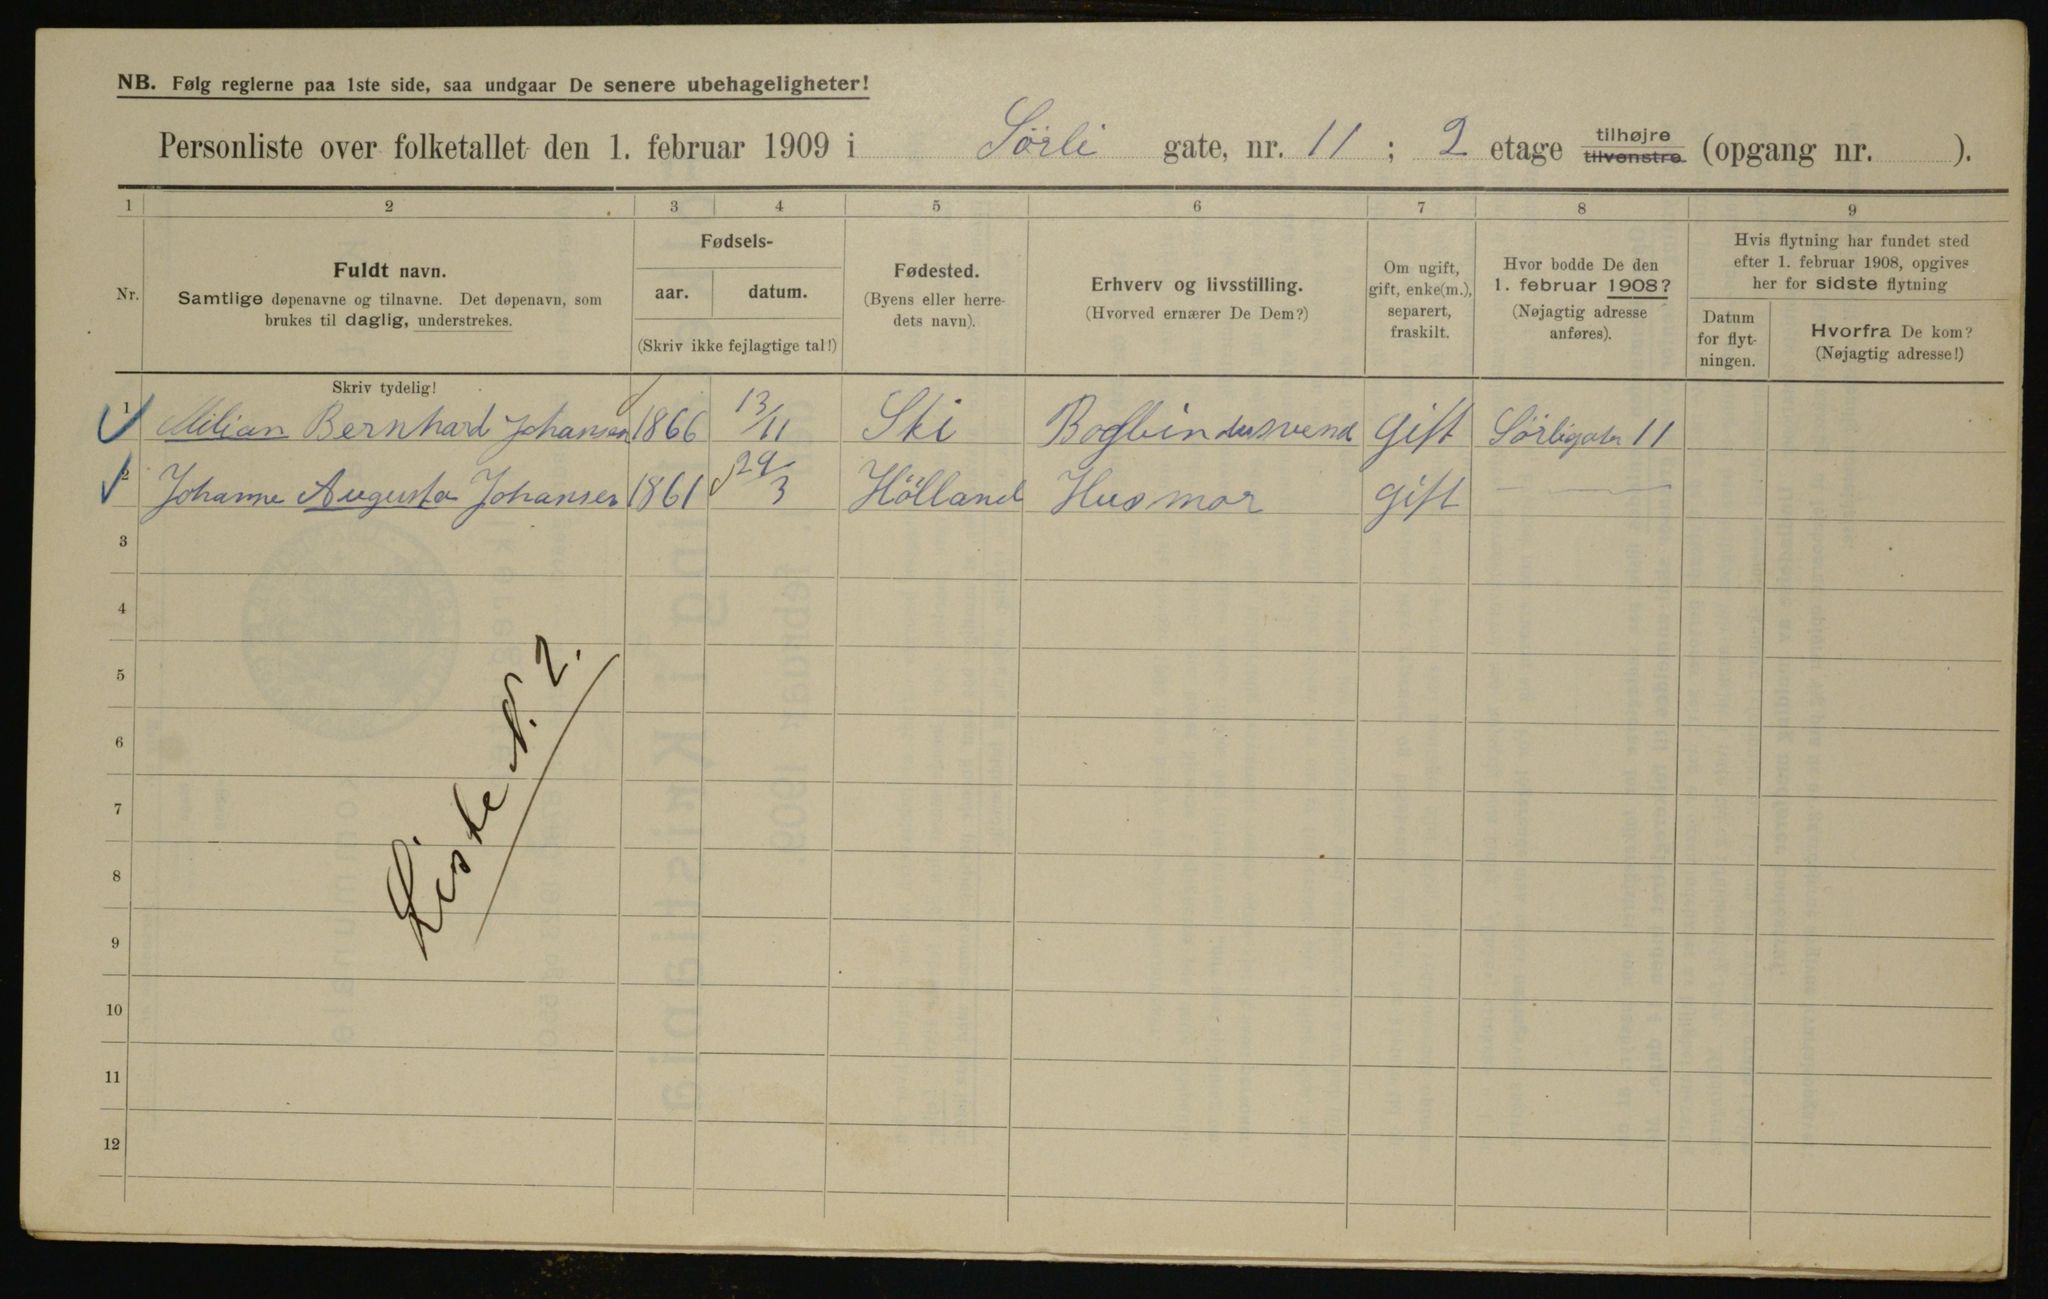 NB. Følg reglerne paa 1ste side, saa undgaar De senere ubehageligheter!
Personliste over folketallet den 1. februar 1909 i Sörli gate, nr. 11 ; 2 etage tilhøjre tilvenstre (opgang nr. ).
1 2 3 4 5 6 7 8 9
Nr.
Fuldt navn.
Samtlige døpenavne og tilnavne. Det døpenavn, som
brukes til daglig, understrekes.
Skriv tydelig!
Fødsels-
aar. datum.
(Skriv ikke fejlagtige tal!)
Fødested.
(Byens eller herre-
dets navn).
Erhverv og livsstilling.
(Hvorved ernærer De Dem?)
Om ugift,
gift, enke(m.),
separert,
fraskilt.
Hvor bodde De den
1. februar 1908?
(Nøjagtig adresse
anføres).
Hvis flytning har fundet sted
efter 1. februar 1908, opgives
her for sidste flytning
Datum
for flyt-
ningen.
Hvorfra De kom?
(Nøjagtig adresse!)
1 Milian Bernhard Johansen 1866 13/11 Ski Bogbindersvend Gift Sörligaten 11
2 Johanne Augusta Johansen 1861 29/3 Hölland Husmor Gift — —
3
4
5
6
7
8
9
10
11
12
Liste N. 2.